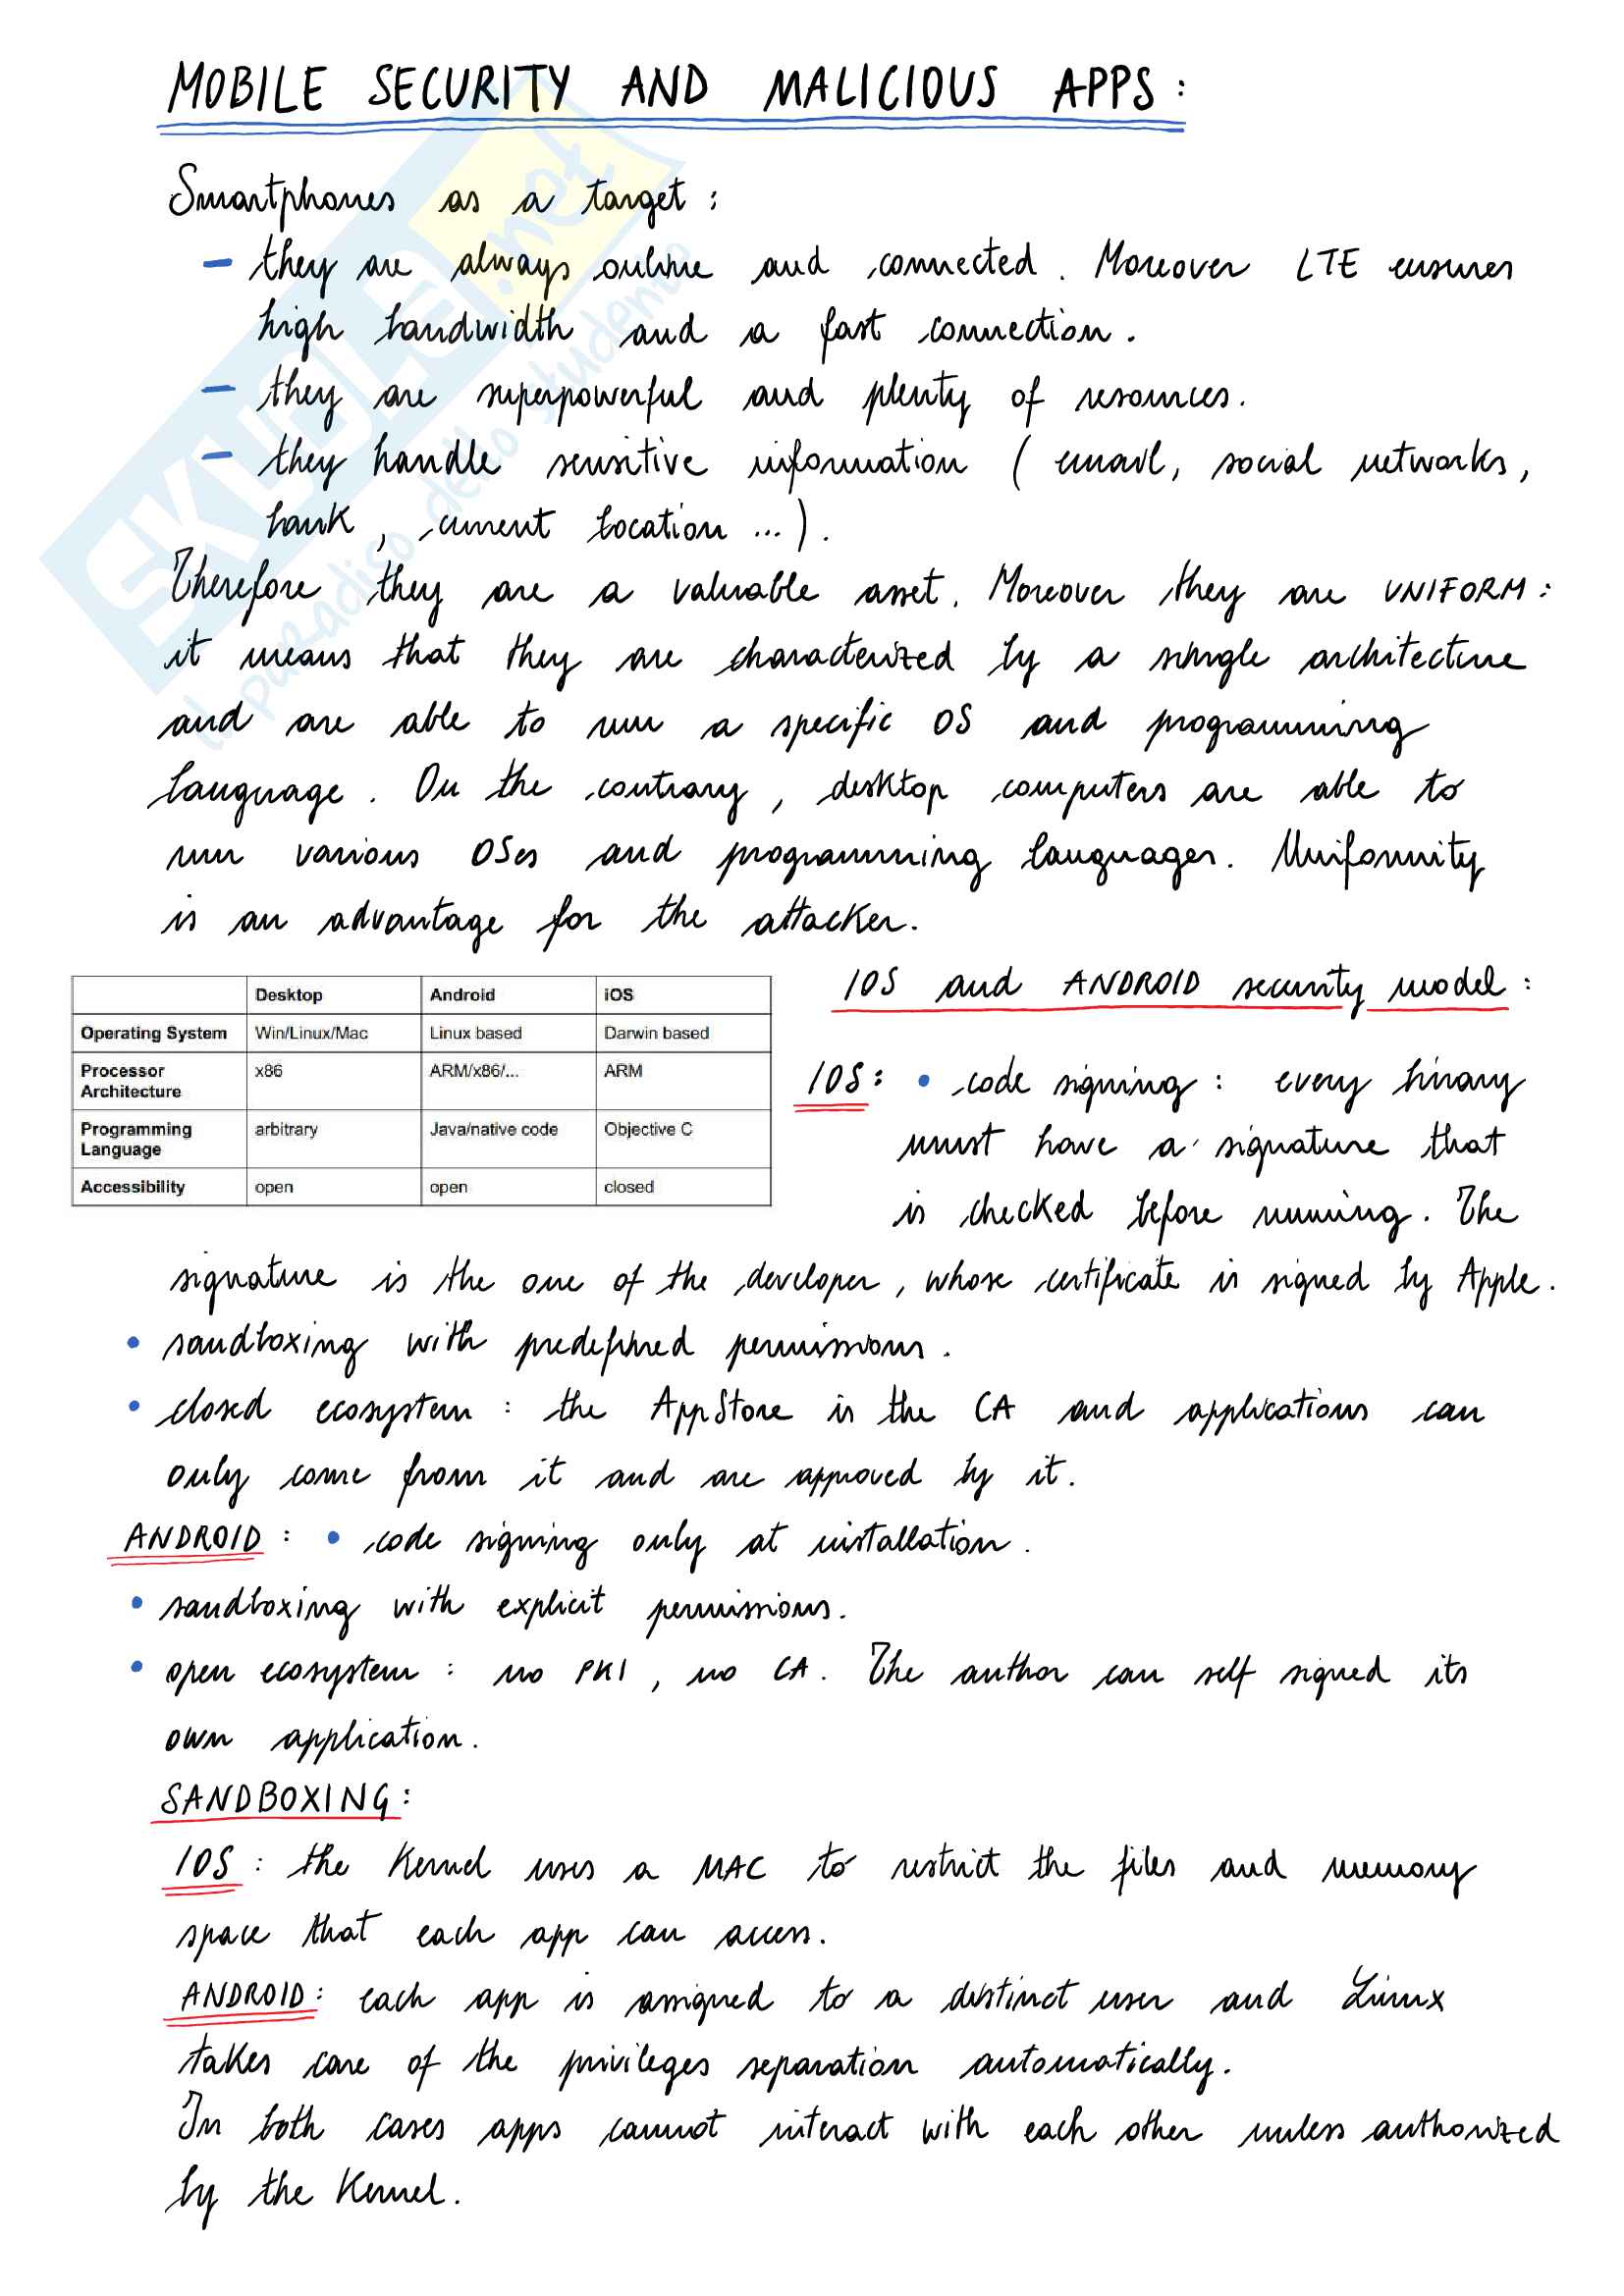 MOBILE SECURITY AND MALICIOUS APPS:
Smartphones as a target:
- they are always online and connected. Moreover LTE ensures
high bandwidth and a fast connection.
- they are superpowerful and plenty of resources.
- they handle sensitive information (email, social networks,
bank, current location ...).
Therefore they are a valuable asset. Moreover they are UNIFORM:
it means that they are characterized by a single architecture
and are able to run a specific OS and programming
language. On the contrary, desktop computers are able to
run various OSes and programming languages. Uniformity
is an advantage for the attacker.
Desktop Android iOS
Operating System Win/Linux/Mac Linux based Darwin based
Processor Architecture x86 ARM/x86/... ARM
Programming Language arbitrary Java/native code Objective C
Accessibility open open closed
IOS and ANDROID security model:
IOS: • code signing: every binary
must have a signature that
is checked before running. The
signature is the one of the developer, whose certificate is signed by Apple.
• sandboxing with predefined permissions.
• closed ecosystem: the AppStore is the CA and applications can
only come from it and are approved by it.
ANDROID: • code signing only at installation.
• sandboxing with explicit permissions.
• open ecosystem: no PKI, no CA. The author can self signed its
own application.
SANDBOXING:
IOS: the Kernel uses a MAC to restrict the files and memory
space that each app can access.
ANDROID: each app is assigned to a distinct user and Linux
takes care of the privileges separation automatically.
In both cases apps cannot interact with each other unless authorized
by the Kernel.
SKUOLA.net
il paradiso dello studente